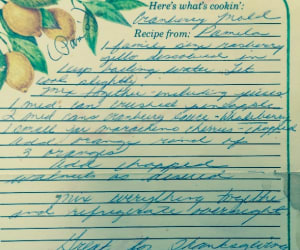 Here's what's cookin':
Cranberry Mold
Recipe from: Pamela
1 family size cranberry
jello dissolved in
1 cup boiling water. Let
cool slightly.
Mix together including juices
1 med. can crushed pineapple
2 med cans cranberry sauce -
1 small jar maraschino cherries - chopped
add orange rind of
3 oranges
Add chopped
walnuts as desired
Mix everything together
and refrigerate overnight
Great for Thanksgiving